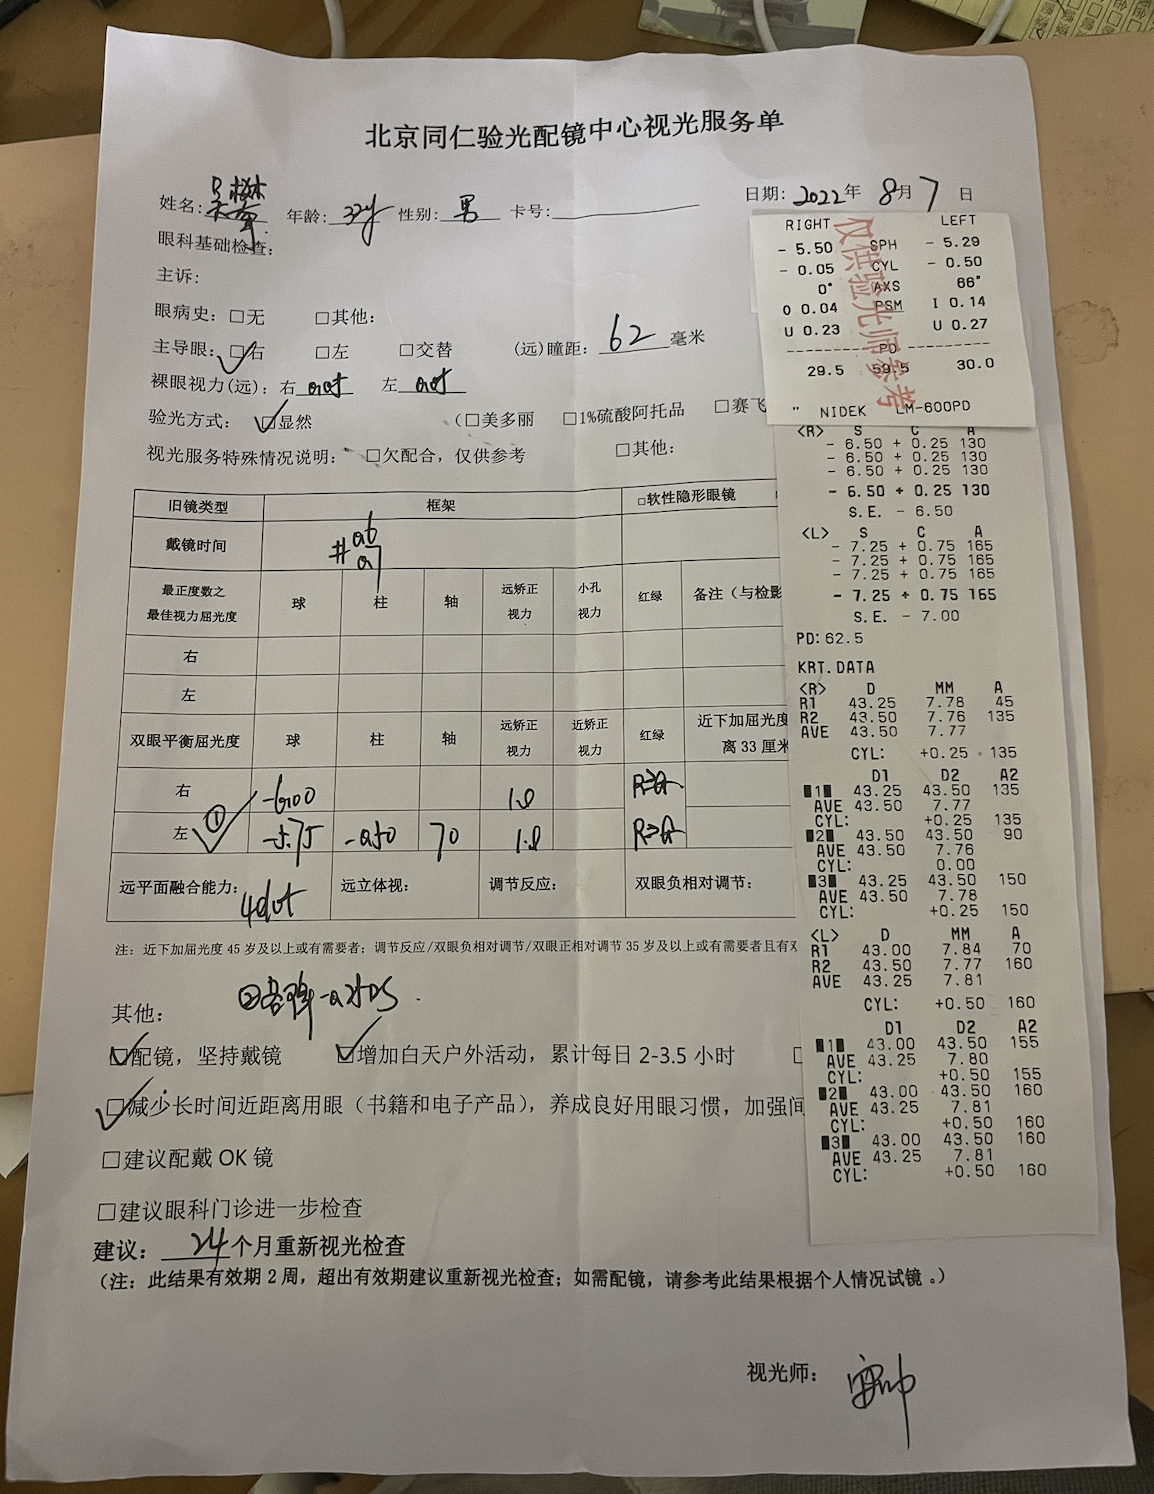 北京同仁验光配镜中心视光服务单
姓名: 年龄: 32y 性别: 男 卡号:
日期: 2022年 8月 7 日
眼科基础检查:
主诉:
眼病史: □无 □其他:
主导眼: □右 □左 □交替 (远)瞳距: 62 毫米
裸眼视力(远): 右 左
验光方式: □显然 (□美多丽 □1%硫酸阿托品 □赛飞
视光服务特殊情况说明: □欠配合, 仅供参考 □其他:
旧镜类型 框架 □软性隐形眼镜
戴镜时间
最正度数之最佳视力屈光度 球 柱 轴 远矫正视力 小孔视力 红绿 备注(与检影
右
左
双眼平衡屈光度 球 柱 轴 远矫正视力 近矫正视力 红绿 近下加屈光度 离33厘米
右 -6.00 1.0
① 左 -5.75 -0.50 70 1.0
远平面融合能力: 4dot 远立体视: 调节反应: 双眼负相对调节:
注: 近下加屈光度 45 岁及以上或有需要者; 调节反应/双眼负相对调节/双眼正相对调节 35 岁及以上或有需要者且有双
其他: ②
□配镜, 坚持戴镜 □增加白天户外活动, 累计每日 2-3.5 小时
□减少长时间近距离用眼(书籍和电子产品), 养成良好用眼习惯, 加强间
□建议配戴 OK 镜
□建议眼科门诊进一步检查
建议: 24 个月重新视光检查
(注: 此结果有效期 2 周, 超出有效期建议重新视光检查; 如需配镜, 请参考此结果根据个人情况试镜。)
视光师:
RIGHT LEFT
- 5.50 SPH - 5.29
- 0.05 CYL - 0.50
0° AXS 66°
O 0.04 PSM I 0.14
U 0.23 U 0.27
PD
29.5 59.5 30.0
" NIDEK LM-600PD
仅供验光师参考
<R> S C A
- 6.50 + 0.25 130
- 6.50 + 0.25 130
- 6.50 + 0.25 130
- 6.50 + 0.25 130
S.E. - 6.50
<L> S C A
- 7.25 + 0.75 165
- 7.25 + 0.75 165
- 7.25 + 0.75 165
- 7.25 + 0.75 165
S.E. - 7.00
PD: 62.5
KRT.DATA
<R> D MM A
R1 43.25 7.78 45
R2 43.50 7.76 135
AVE 43.50 7.77
CYL: +0.25 135
D1 D2 A2
1 43.25 43.50 135
AVE 43.50 7.77
CYL: +0.25 135
2 43.50 43.50 90
AVE 43.50 7.76
CYL: 0.00
3 43.25 43.50 150
AVE 43.50 7.78
CYL: +0.25 150
<L> D MM A
R1 43.00 7.84 70
R2 43.50 7.77 160
AVE 43.25 7.81
CYL: +0.50 160
D1 D2 A2
1 43.00 43.50 155
AVE 43.25 7.80
CYL: +0.50 155
2 43.00 43.50 160
AVE 43.25 7.81
CYL: +0.50 160
3 43.00 43.50 160
AVE 43.25 7.81
CYL: +0.50 160